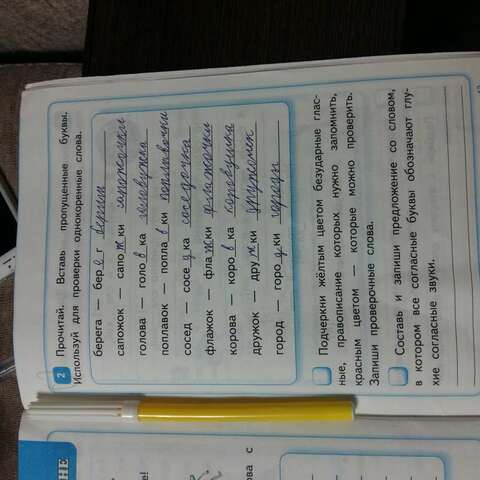 НЕ
2 Прочитай. Вставь пропущенные буквы.
Используй для проверки однокоренные слова.
берега — бер е г
сапожок — сапо ж ки сапожочки
голова — голо в ка головушка
поплавок — попла в ки поплывочки
сосед — сосе д ка соседочка
флажок — фла ж ки флажочки
корова — коро в ка коровушка
дружок — дру ж ки дружочек
город — горо д ки городы
е!
ова с
Подчеркни жёлтым цветом безударные глас-
ные, правописание которых нужно запомнить,
красным цветом — которые можно проверить.
Запиши проверочные слова.
Составь и запиши предложение со словом,
в котором все согласные буквы обозначают глу-
хие согласные звуки.